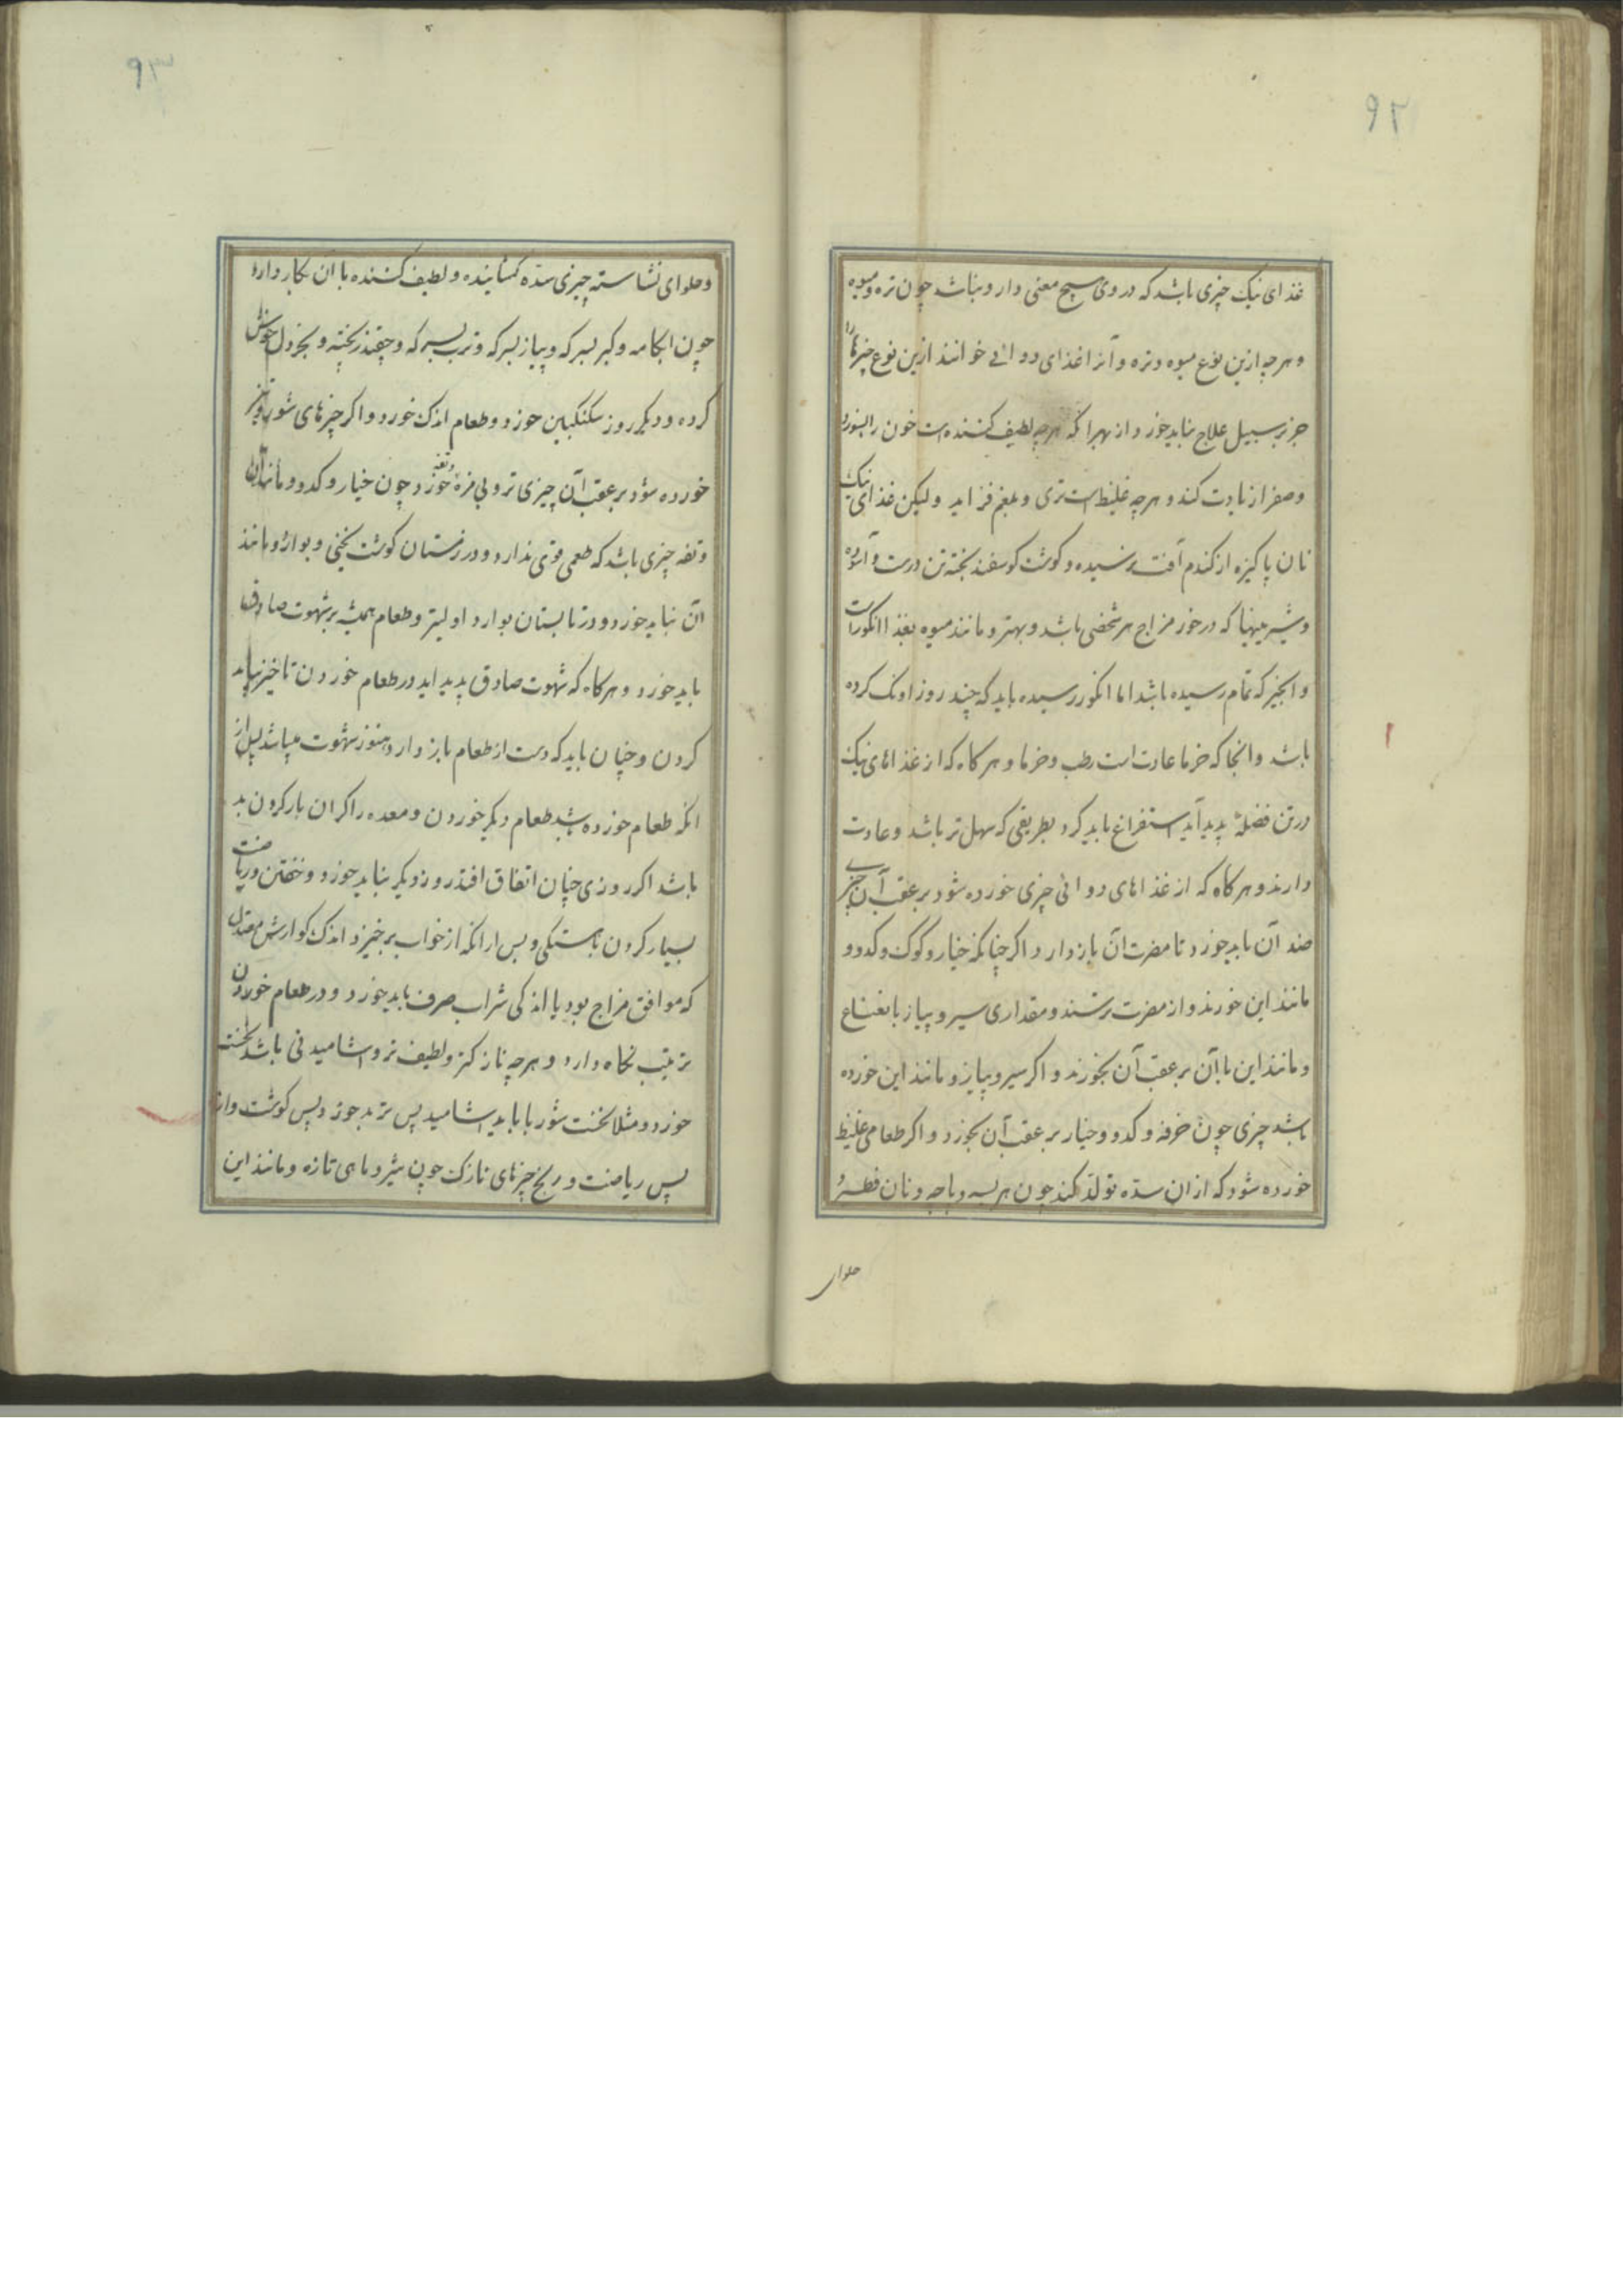 ۹۲
غذای نیک چیزی باشد که در وی هیچ معنی دارو نباشد چون تره و میوه
و هرچه ازین نوع میوه و تره و آنرا غذای دوائی خوانند ازین نوع چیزها را
جز بر سبیل علاج نباید خورد از بهر آنکه هرچه لطیف کننده است خون را بسوزد
و صفرا زیادت کند و هرچه غلیظ است تری و بلغم فزاید ولیکن غذای نیک
نان پاکیزه از کندم آفت نرسیده و کوشت کوسفند بخته تن درست و آسوده
و شیرینیها که درخور مزاج هر شخصی باشد و بهتر و مانند میوه بغذا انکورست
و انجیر که تمام رسیده باشد اما انکور رسیده باید که چند روز اونک کرده
باشد و انجا که خرما عادت است رطب و خرما و هرکاه که از غذاهای نیک
در تن فضلهٔ پدید آید استفراغ باید کرد بطریقی که سهل تر باشد و عادت
دارند و هرکاه که از غذاهای دوائی چیزی خورده شود بر عقب آن چیزی
ضد آن باید خورد تا مضرت آن باز دارد اکر چنانکه خیار و کوک و کدو و
مانند این خورند و از مضرت ترسند و مقداری سیر و پیاز با نعناع
و مانند این با آن بر عقب آن بخورند و اکر سیر و پیاز و مانند این خورده
باشد چیزی چون خرفه و کدو و خیار بر عقب آن بخورد و اکر طعامی غلیظ
خورده شود که ازان سده تولد کند چون هریسه و پاچه و نان فطیر و
حلوای
۹۳
و حلوای نشاسته چیزی سده کشاینده و لطیف کننده با ان بکار دارد
چون ابکامه و کبر بسرکه و پیاز بسرکه و ترب بسرکه و چقندر پخته و بخردل خوش
کرده و دیکر روز سکنکبین خورد و طعام اندک خورد و اکر چیزهای شور و تیز
خورده شود بر عقب آن چیزی تر و بی مزه و تفه خورد چون خیار و کدو و مانند آن
و تفه چیزی باشد که طعمی قوی ندارد و در زمستان کوشت یخنی و بوارد و مانند
آن نباید خورد و در تابستان بوارد اولیتر و طعام همیشه بر شهوت صادق
باید خورد و هرکاه که شهوت صادق پدید اید در طعام خوردن تاخیر نباید
کردن و چنان باید که دست از طعام باز دارد هنوز شهوت میباشد پس از
انکه طعام خورده باشد طعام دیکر خوردن و معده را کران بار کردن بد
باشد اکر روزی چنان اتفاق افتد روز دیکر نباید خورد و خفتن و ریاضت
بسیار کردن باهستکی و پس ازانکه از خواب برخیزد اندک کوارش معتدل
که موافق مزاج بود یا اندکی شراب صرف باید خورد و در طعام خوردن
ترتیب نکاه دارد و هرچه نازکتر و لطیف تر و اشامیدنی باشد نخست
خورد و مثلا نخست شوربا باید اشامید پس ترید خورد پس کوشت و از
پس ریاضت و رنج چیزهای نازک چون شیر و ماهی تازه و مانند این